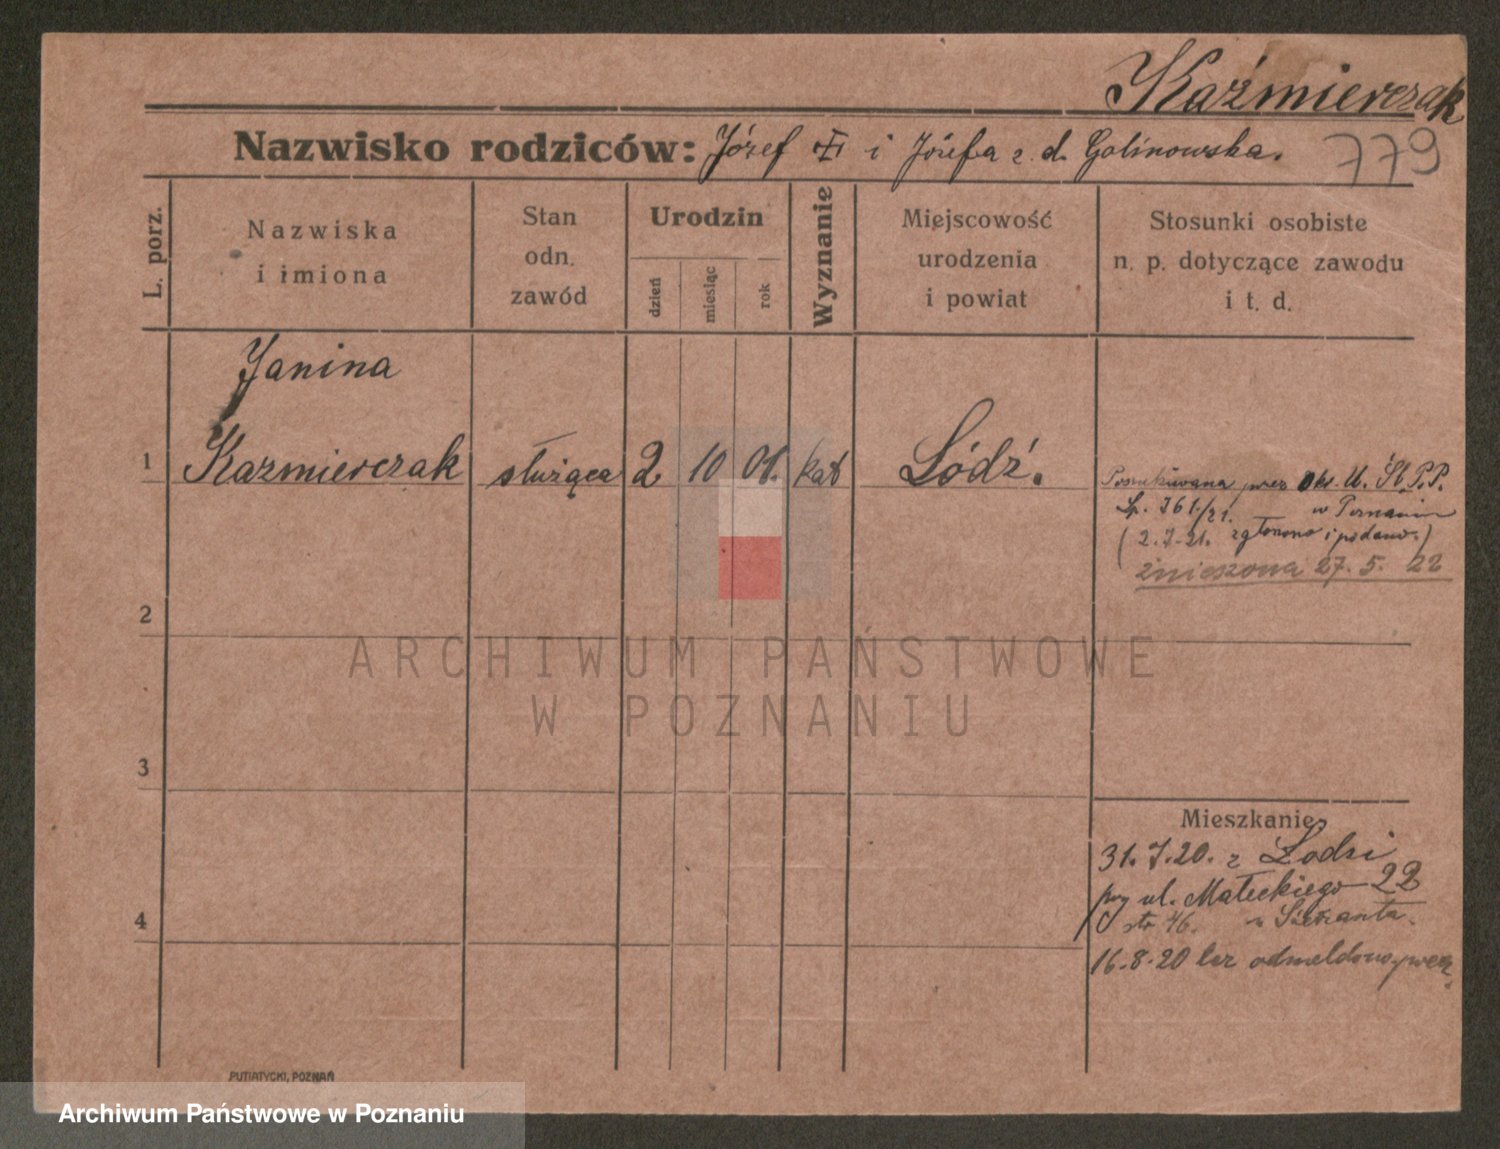 Kaźmierczak
Nazwisko rodziców: Józef i Józefa z d. Golinowska.
779
L. porz.
Nazwiska
i imiona
Stan
odn.
zawód
Urodzin
dzień
miesiąc
rok
Wyznanie
Miejscowość
urodzenia
i powiat
Stosunki osobiste
n. p. dotyczące zawodu
i t. d.
Janina
1 Kazmierczak służąca 2 10 01. kat Łódź.
Poszukiwana przez Okr. U. Śl. P.P.
Lp. 761/21. w Poznaniu
(2.7.21. zgłoszono i podano.)
zniesiona 27. 5. 22
2
3
4
Mieszkanie
31. 7. 20. z Łodzi
przy ul. Małeckiego 22
str 46.
16. 8. 20 bez odmeldow.
PUTIATYCKI, POZNAŃ
ARCHIWUM PAŃSTWOWE
W POZNANIU
Archiwum Państwowe w Poznaniu